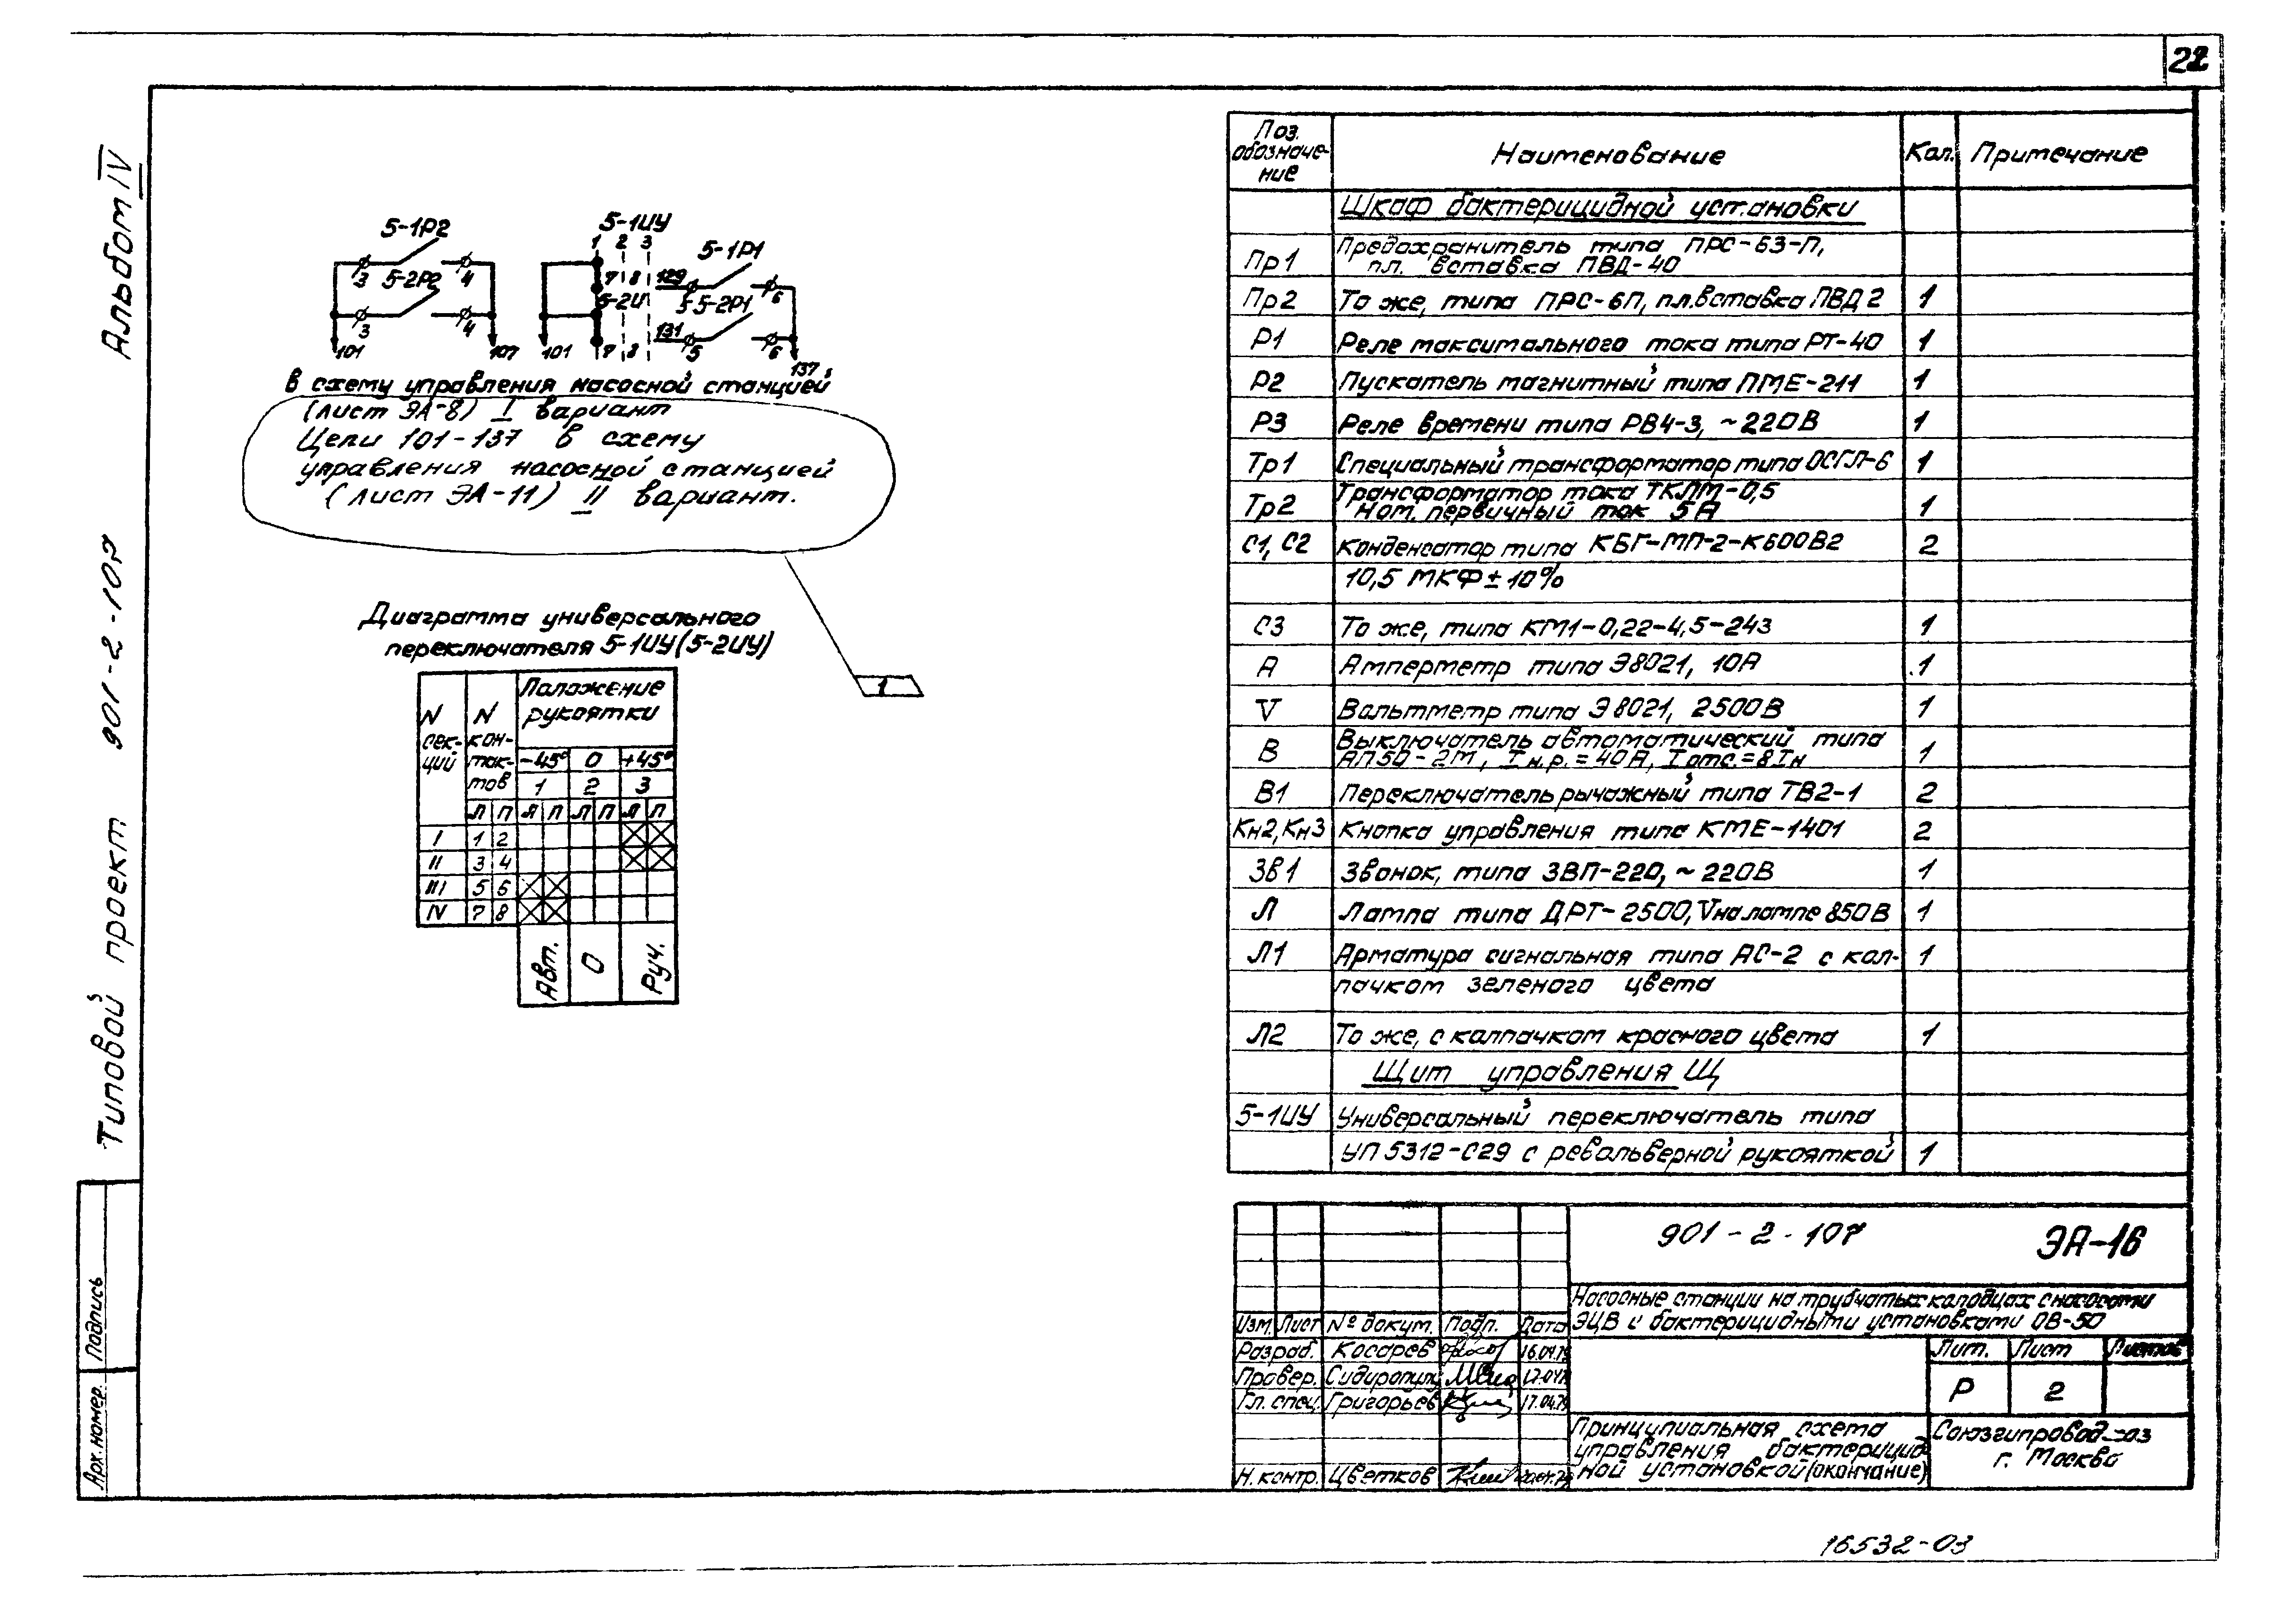 22
Альбом IV
Типовой проект 901-2-107
Подпись
Арх. номер.
5-1Р2
3 4
5-2Р2
3 4
101 107
5-1ИУ
1 2 3
7 8
5-2И
7 8
101
5-1Р1
129
5 6
5-2Р1
131
5 6
137
В схему управления насосной станцией
(лист ЭА-8) I вариант
Цепи 101-137 в схему
управления насосной станцией
(лист ЭА-11) II вариант.
1
Диаграмма универсального
переключателя 5-1ИУ(5-2ИУ)
N секций
N контактов
Положение рукоятки
-45° 0 +45°
1 2 3
Л П Л П Л П Л П
I 1 2
II 3 4
III 5 6
IV 7 8
Авт. 0 Руч.
Поз. обозначение Наименование Кол. Примечание
Шкаф бактерицидной установки
Пр1 Предохранитель типа ПРС-63-П,
пл. вставка ПВД-40
Пр2 То же, типа ПРС-6П, пл.вставка ПВД2 1
Р1 Реле максимального тока типа РТ-40 1
Р2 Пускатель магнитный типа ПМЕ-211 1
Р3 Реле времени типа РВ4-3, ~220В 1
Тр1 Специальный трансформатор типа ОСГЛ-6 1
Тр2 Трансформатор тока ТКЛМ-0,5
Ном. первичный ток 5А 1
С1, С2 Конденсатор типа КБГ-МП-2-К600В2 2
10,5 МКФ±10%
С3 То же, типа КМ1-0,22-4,5-243 1
А Амперметр типа Э8021, 10А 1
V Вольтметр типа Э8021, 2500В 1
В Выключатель автоматический типа
АП50-2М, Iн.р.=40А, Iотс.=8Iн 1
В1 Переключатель рычажный типа ТВ2-1 2
Кн2, Кн3 Кнопка управления типа КМЕ-1401 2
Зв1 Звонок, типа ЗВП-220, ~220В 1
Л Лампа типа ДРТ-2500, V на лампе 850В 1
Л1 Арматура сигнальная типа АС-2 с кол- 1
пачком зеленого цвета
Л2 То же, с колпачком красного цвета 1
Щит управления Щ
5-1ИУ Универсальный переключатель типа
УП5312-С29 с револьверной рукояткой 1
901-2-107 ЭА-16
Насосные станции на трубчатых колодцах с насосами
ЭЦВ и бактерицидными установками ОВ-50
Изм. Лист № докум. Подп. Дата
Разраб. Косарев 16.04.79
Провер. Сидиропулу
Гл. спец. Григорьев 17.04.79
Н. контр. Цветков
Лит. Лист Листов
Р 2
Принципиальная схема
управления бактерицид-
ной установкой (окончание)
Союзгипроводхоз
г. Москва
16532-03